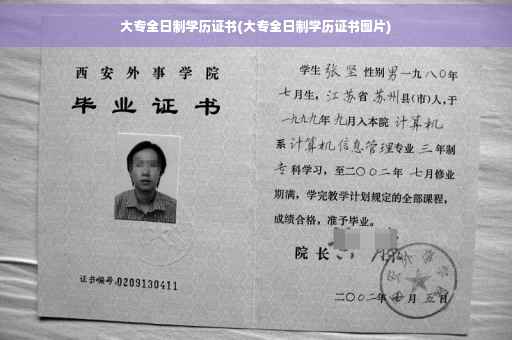 大专全日制学历证书(大专全日制学历证书图片)
西安外事学院
毕业证书
证书编号:0209130411
学生 张坚 性别 男 一九八〇年
七月生，江苏省 苏州县(市)人,于
一九九九年 九月入本院 计算机
系 计算机信息管理专业 三 年制
专科学习，至二〇〇二年 七月修业
期满，学完教学计划规定的全部课程，
成绩合格，准予毕业。
院长
二〇〇二年 月 五日